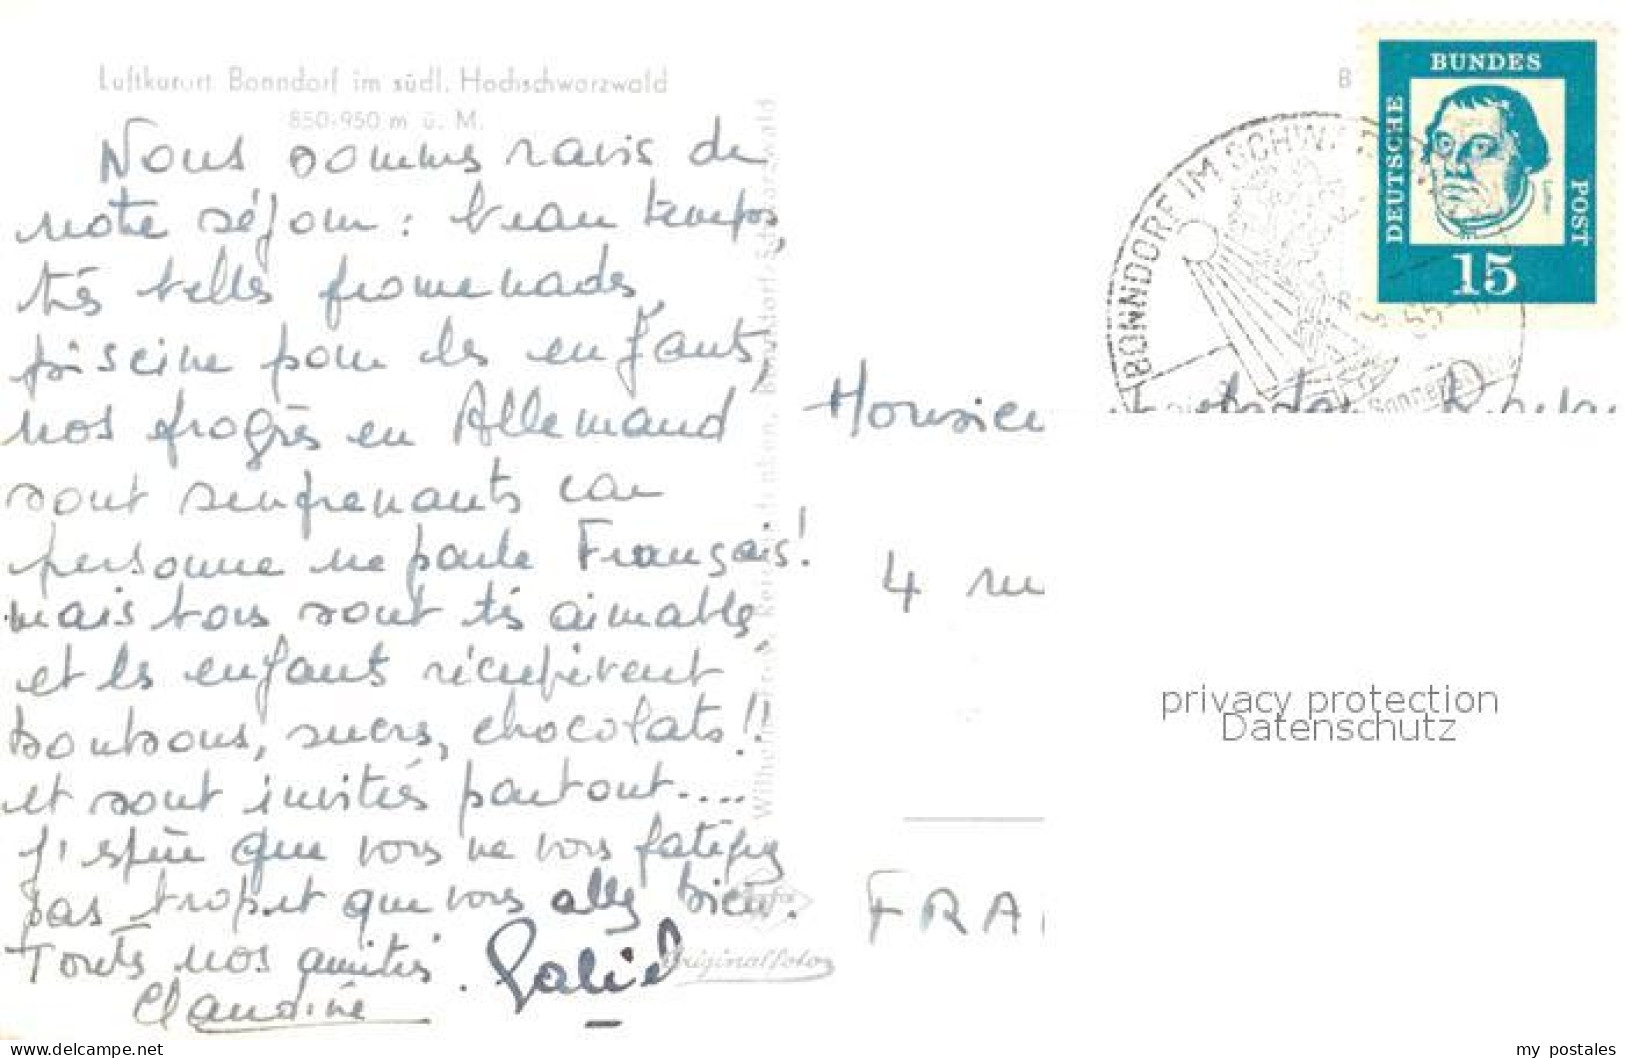 Luftkurort Bonndorf im südl. Hochschwarzwald
850-950 m ü. M.
Nous sommes ravis de
notre séjour : beau temps,
très belles promenades,
piscine pour les enfants,
nos progrès en Allemand
sont surprenants car
personne ne parle Français!
mais tous sont très aimables
et les enfants récupèrent
bonbons, sucres, chocolats!!
et sont invités partout....
J'espère que vous ne vous fatiguez
pas trop et que vous allez bien.
Toutes nos amitiés.
Claudine
Gabriel
Originalfoto
DEUTSCHE
BUNDES
POST
Luther
15
BONNDORF IM SCHW
Monsieu
4 ru
FRA
privacy protection
Datenschutz
www.delcampe.net
my_postales